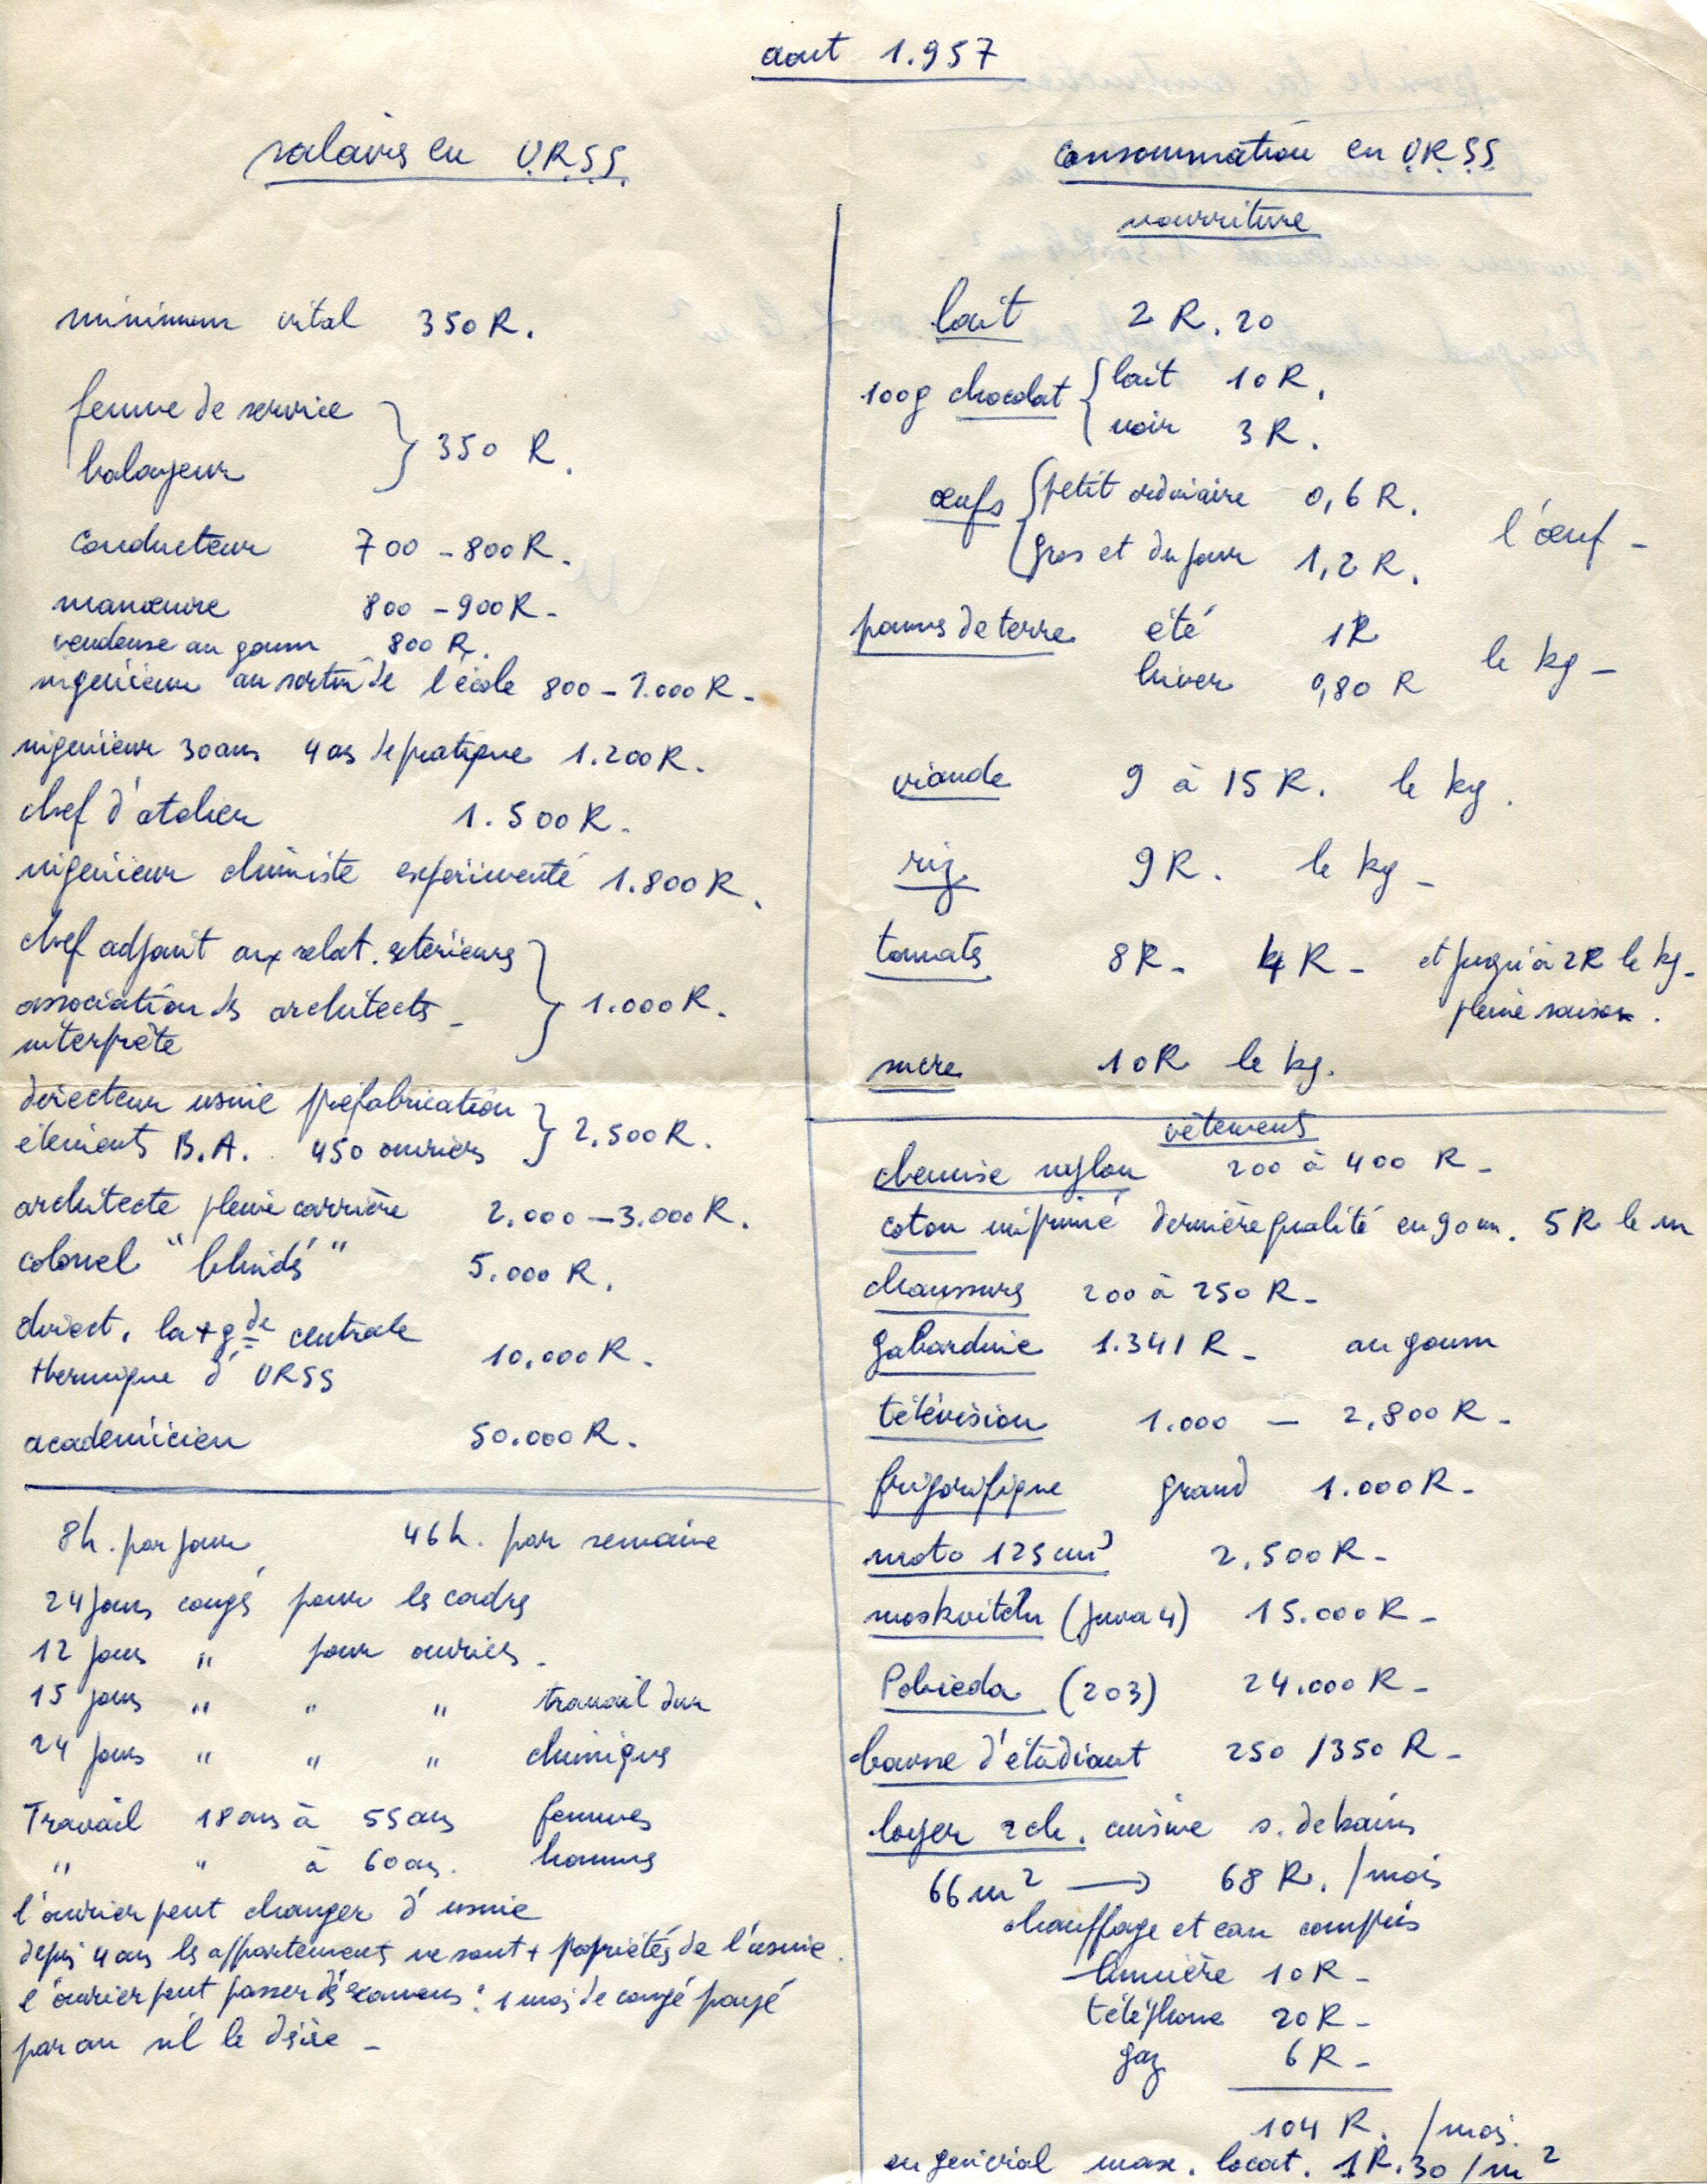 aout 1.957
salaires en U.R.S.S.
minimum vital 350 R.
femme de service
balayeur
350 R.
conducteur 700 - 800 R.
manœuvre 800 - 900 R -
vendeuse au goum 800 R.
ingénieur au sortir de l'école 800 - 1.000 R -
ingénieur 30 ans 4 ans de pratique 1.200 R.
chef d'atelier 1.500 R -
ingénieur chimiste expérimenté 1.800 R.
chef adjoint aux relat. extérieures
association des architectes -
interprète
1.000 R.
directeur usine préfabrication
éléments B.A. 450 ouvriers
2.500 R.
architecte pleine carrière 2.000 - 3.000 R.
colonel "blindés" 5.000 R.
direct. la + gde centrale
thermique d'URSS
10.000 R -
académicien 50.000 R -
8h. par jour, 46h. par semaine
24 jours congés pour les cadres
12 jours " pour ouvriers -
15 jours " " " travail dur
24 jours " " " chimiques
Travail 18 ans à 55 ans femmes
" " à 60 ans. hommes
l'ouvrier peut changer d'usine
depuis 4 ans les appartements ne sont + propriétés de l'usine.
l'ouvrier peut passer des examens : 1 mois de congé payé
par an s'il le désire -
consommation en U.R.S.S.
nourriture
lait 2 R. 20
100g chocolat { lait 10 R.
noir 3 R.
œufs { petit ordinaire 0,6 R.
gros et du jour 1,2 R.
l'œuf -
pommes de terre été 1R
hiver 0,80 R
le kg -
viande 9 à 15 R. le kg.
riz 9 R. le kg -
tomates 8 R - 4 R - et jusqu'à 2R le kg -
pleine saison.
sucre 10R le kg.
vêtements
chemise nylon 200 à 400 R -
coton imprimé dernière qualité en 90 cm. 5 R le m
chaussures 200 à 250 R -
gabardine 1.341 R - au goum
télévision 1.000 - 2.800 R -
frigorifique grand 1.000 R -
moto 125 cm3 2.500 R -
moskvitch (juva 4) 15.000 R -
Pobieda (203) 24.000 R -
bourse d'étudiant 250 / 350 R -
loyer 2 ch. cuisine s. de bains
66 m² → 68 R. / mois
chauffage et eau compris
lumière 10 R -
téléphone 20 R -
gaz 6 R -
104 R. / mois.
en général max. locat. 1R.30 / m²